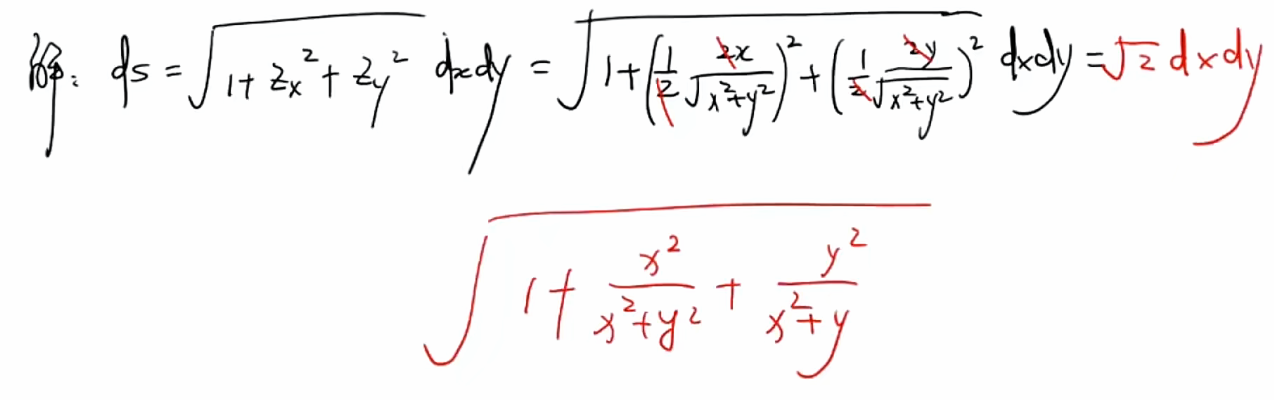 解: ds = √(1 + z_x² + z_y²) dxdy = √(1 + (1/2 · 2x/√(x²+y²))² + (1/2 · 2y/√(x²+y²))²) dxdy = √2 dxdy
√(1 + x²/(x²+y²) + y²/(x²+y))